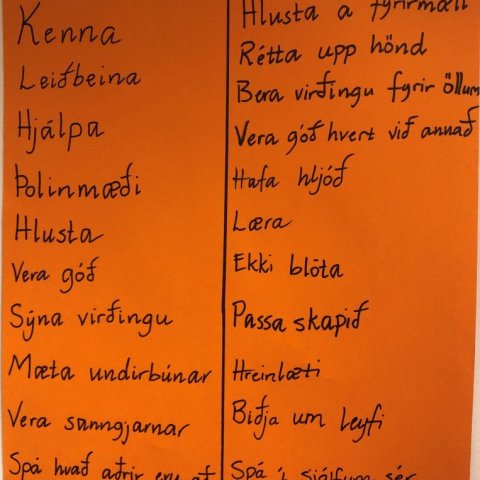 Kenna
Leiðbeina
Hjálpa
Þolinmæði
Hlusta
Vera góð
Sýna virðingu
Mæta undirbúnar
Vera sanngjarnar
Spá hvað aðrir eru að
Hlusta á fyrirmæli
Rétta upp hönd
Bera virðingu fyrir öllum
Vera góð hvert við annað
Hafa hljóð
Læra
Ekki blóta
Passa skapið
Hreinlæti
Biðja um leyfi
Spá í sjálfum sér